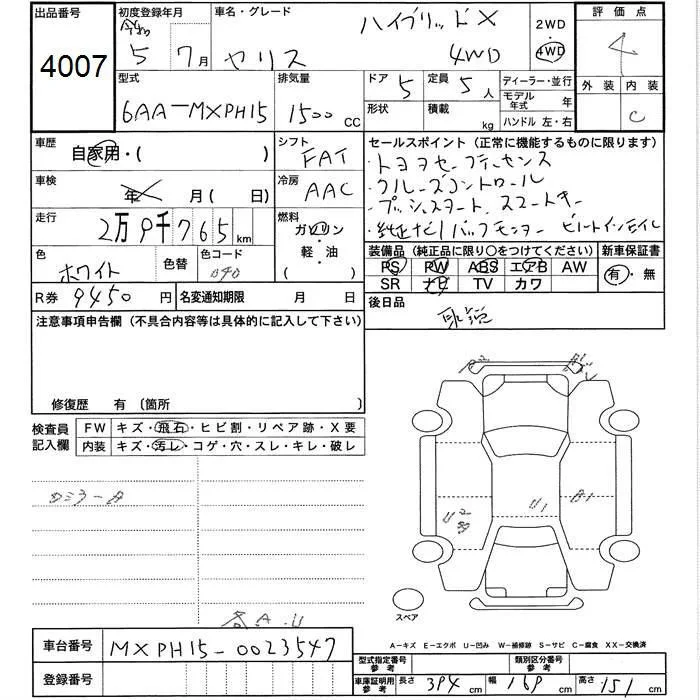 出品番号 4007
初度登録年月 令和 5年 7月
車名・グレード ヤリス ハイブリッドX 4WD
2WD 4WD
評価点 4
外装 内装 C
型式 6AA-MXPH15
排気量 1500 CC
ドア 5 定員 5人
形状 積載 kg
ディーラー・並行
モデル年式 年
ハンドル 左・右
車歴 自家用・( )
シフト FAT
車検 年 月( 日)
冷房 AAC
走行 2万9千765km
燃料 ガソリン 軽・油 ( )
色 ホワイト 色替 色コード 040
R券 9450円 名変通知期限 月 日
セールスポイント(正常に機能するものに限ります)
・トヨタセーフティセンス
・クルーズコントロール
・プッシュスタート スマートキー
・純正ナビ/バックモニター ビルトインモイル
装備品(純正品に限り○をつけてください) 新車保証書
PS PW ABS エアB AW 有・無
SR ナビ TV カワ
後日品 取説
注意事項申告欄(不具合内容等は具体的に記入して下さい)
修復歴 有〔箇所 〕
検査員記入欄
FW キズ・飛石・ヒビ割・リペア跡・X要
内装 キズ・汚レ・コゲ・穴・スレ・キレ・破レ
カミラーA
各A.U
A1
U2
U1
A1
スペア
A-キズ E-エクボ U-凹み W-補修跡 S-サビ C-腐食 XX-交換済
車台番号 MXPH15-0023547
登録番号
型式指定番号参考 類別区分番号参考
車庫証明用参考 長さ 394cm 幅 169cm 高さ 151cm